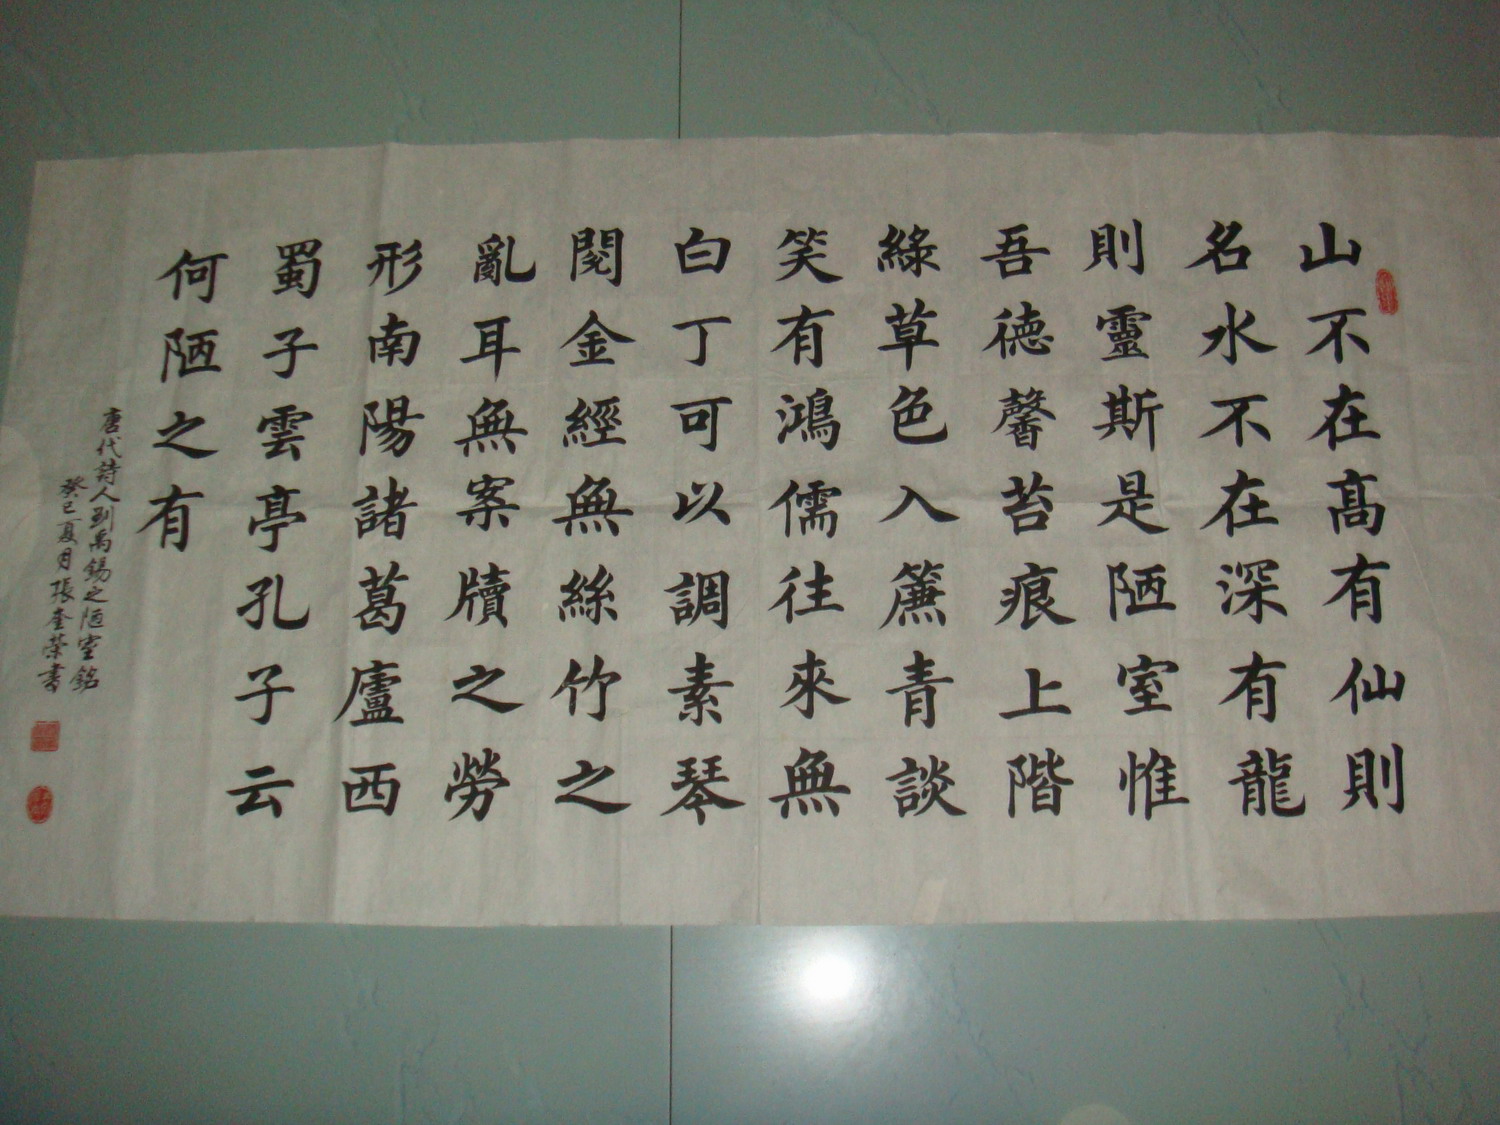 山不在高有仙則
名水不在深有龍
則靈斯是陋室惟
吾德馨苔痕上階
綠草色入簾青談
笑有鴻儒往來無
白丁可以調素琴
閱金經無絲竹之
亂耳無案牘之勞
形南陽諸葛廬西
蜀子雲亭孔子云
何陋之有
唐代詩人劉禹錫之陋室銘
癸巳夏月張奎榮書